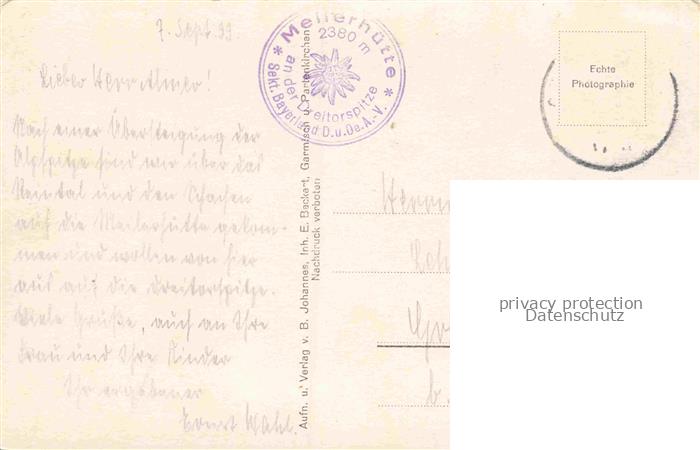 7. Sept. 33.
Lieber Herr Ulmer!
Nach einer Übersteigung der
Alpspitze sind wir über das
Reintal und den Schachen
auf die Meilerhütte gekom-
men und wollen von hier
aus auf die Dreitorspitze.
Viele Grüße, auch an Ihre
Frau und Ihre Kinder
Ihr ergebener
Wahl.
Meilerhütte
2380 m
an der Dreitorspitze
* Sekt. Bayerland D.u.Oe.A.-V. *
Aufn. u. Verlag v. B. Johannes, Inh. E. Beckert, Garmisch u. Partenkirchen
Nachdruck verboten
Echte
Photographie
Herrn
b.
privacy protection
Datenschutz